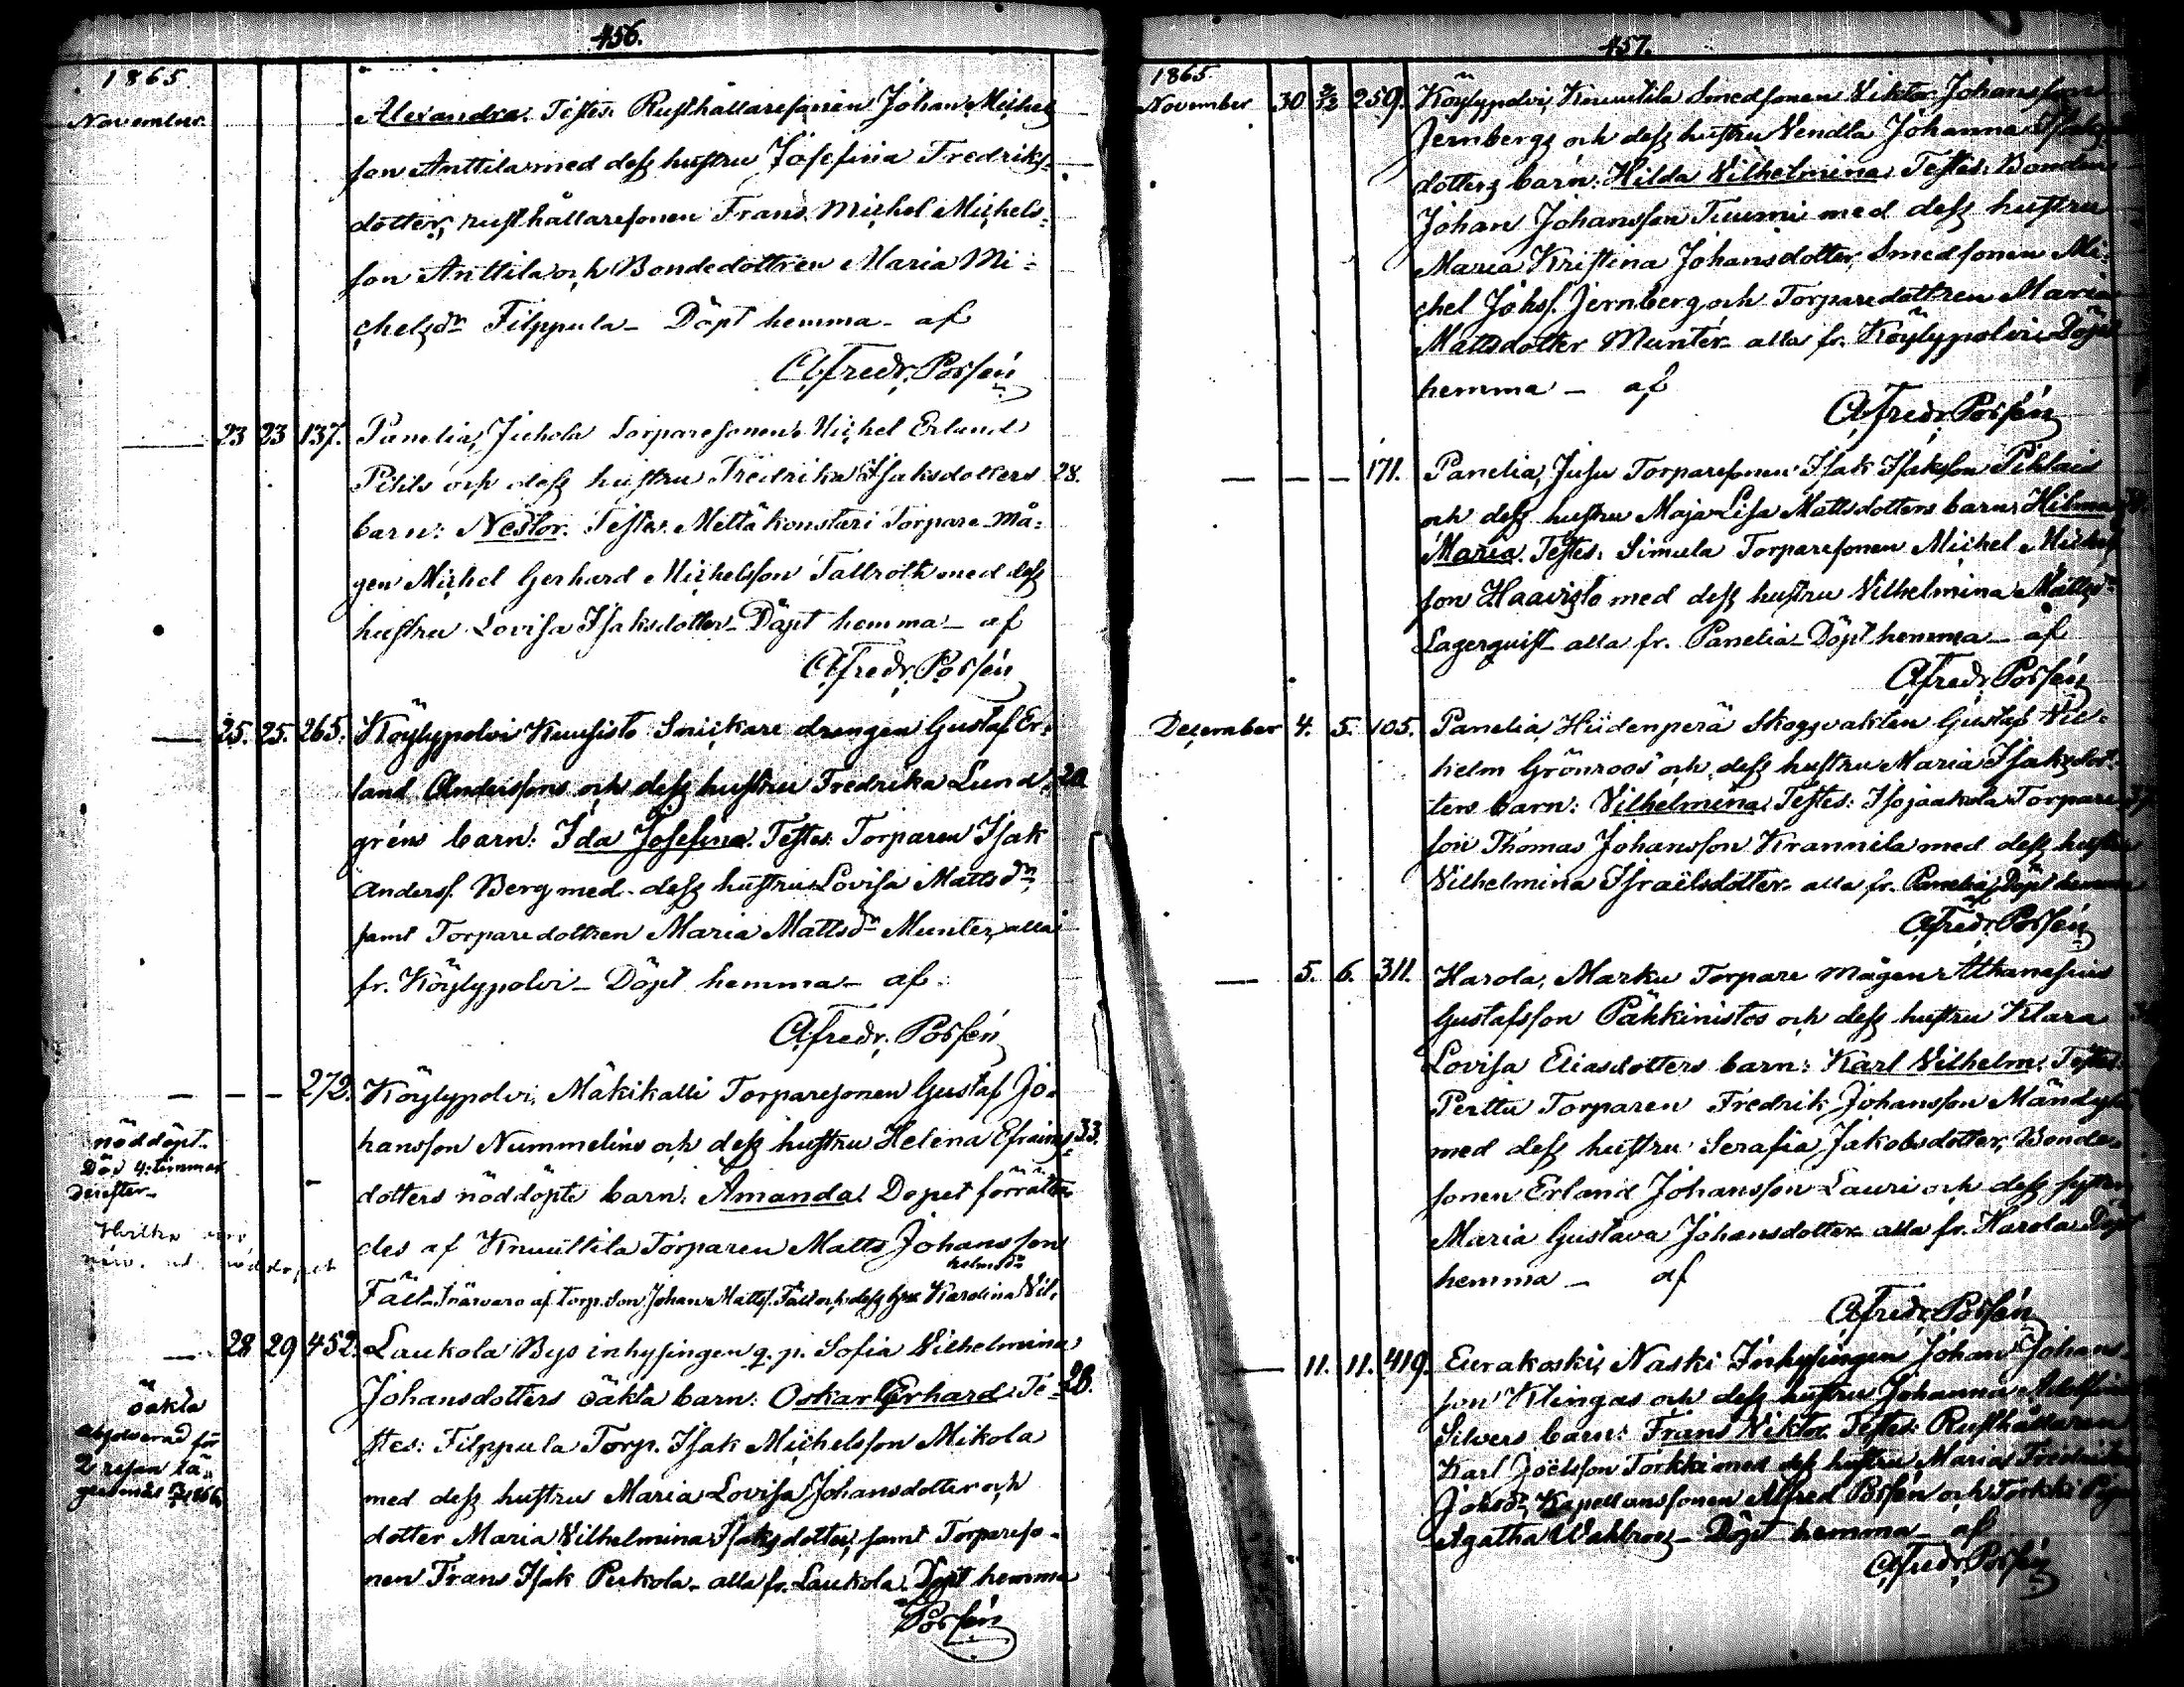 456.
1865
November
Alexandra. Testes: Rusthållaresonen Johan Michels
son Anttila med dess hustru Josefina Fredriks-
dotter, rusthållaresonen Frans Michel Michels-
son Anttila och Bondedottren Maria Mi-
chelsdr Filppula - Döpt hemma - af
A. Fredr. Porsén
— 23 23 137. Panelia, Juhola Torparesonen Michel Erland
Pihls och dess hustru Fredrika Isaksdotters 28.
barn: Nestor. Testes: Mettäkonstari Torpare må-
gen Michel Gerhard Michelsson Tallroth med dess
hustru Lovisa Isaksdotter - Döpt hemma - af
A. Fredr. Porsén
— 25. 25. 265. Köylypolvi Kuusisto Snickare drengen Gustaf Er-
land Anderssons och dess hustru Fredrika Lund-
gréns barn: Ida Josefina. Testes: Torparen Isak
Anderss. Berg med dess hustru Lovisa Mattsdr,
samt Torparedottren Maria Mattsdr Munter, alla
fr. Köylypolvi - Döpt hemma - af
A. Fredr. Porsén
— — — 272. Köylypolvi, Mäkikalli Torparesonen Gustaf Jo-
hansson Nummelins och dess hustru Helena Efraims- 33.
dotters nöddöpte barn: Amanda. Dopet förrätta-
des af Knuuttila Torparen Matts Johansson
helmsdr
Fält i närvaro af Torp. Son Johan Matts. Fält och dess hru Karolina Vil-
nöddöpt.
Död 4. timmar
derefter
— 28 29 452. Laukola Bys inhysingen q. p. Sofia Vilhelmina
Johansdotters oäkta barn: Oskar Gerhard. Te- 28.
stes: Filppula Torp. Isak Michelsson Mikola
med dess hustru Maria Lovisa Johansdotter och
dotter Maria Vilhelmina Isaksdotter, samt Torpareso-
nen Frans Isak Perkola - alla fr. Laukola. Döpt hemma
Porsén
oäkta
absolverad för
2 resan lä-
gersmål
457.
1865
November 30 3/12 259. Köylypolvi, Knuutila Smedsonen Viktor Johansson
Jernbergs och dess hustru Vendla Johanna Isaks-
dotters barn: Hilda Vilhelmina. Testes: Bonden
Johan Johansson Tuumi med dess hustru
Maria Kristina Johansdotter, Smedsonen Mi-
chel Johs. Jernberg och Torparedottren Maria
Mattsdotter Munter - alla fr. Köylypolvi - Döpt
hemma - af
A. Fredr. Porsén
— — — 171. Panelia, Jusu Torparesonen Isak Isaksson Pihlais
och dess hustru Maja Lisa Mattsdotters barn: Hilma
Maria. Testes: Simula Torparesonen Michel Michels
son Haavisto med dess hustru Vilhelmina Mattsdr
Lagerquist - alla fr. Panelia - Döpt hemma - af
A. Fredr. Porsén
December 4. 5. 105. Panelia, Hiidenperä Skogsvakten Gustaf Vil-
helm Grönroos och dess hustru Maria Isaksdot-
ters barn: Vilhelmina. Testes: Isojaakola Torpare
son Thomas Johansson Krannila med dess hustru
Vilhelmina Israelsdotter - alla fr. Panelia, Döpt hemma
af
A. Fredr. Porsén
— 5. 6. 311. Harola, Marku Torpare mågen Athanasius
Gustafsson Päkkinistos och dess hustru Klara
Lovisa Eliasdotters barn: Karl Vilhelm. Testes:
Perttu Torparen Fredrik Johansson Mändyla
med dess hustru Serafia Jakobsdotter, Bonde-
sonen Erland Johansson Lauri och dess syster
Maria Gustava Johansdotter - alla fr. Harola - Döpt
hemma - af
A. Fredr. Porsén
— 11. 11. 419. Eurakoski, Naski Inhysingen Johan Johans-
son Klingas och dess hustru Johanna Adolfina
Silvers barn: Frans Viktor. Testes: Rusthållaren
Karl Joëlsson Torkki med dess hustru Maria Fredrika
Johsdr, Kapellanssonen Alfred Porsén och Torkki Pigan
Agatha Wahlroos - Döpt hemma - af
A. Fredr. Porsén